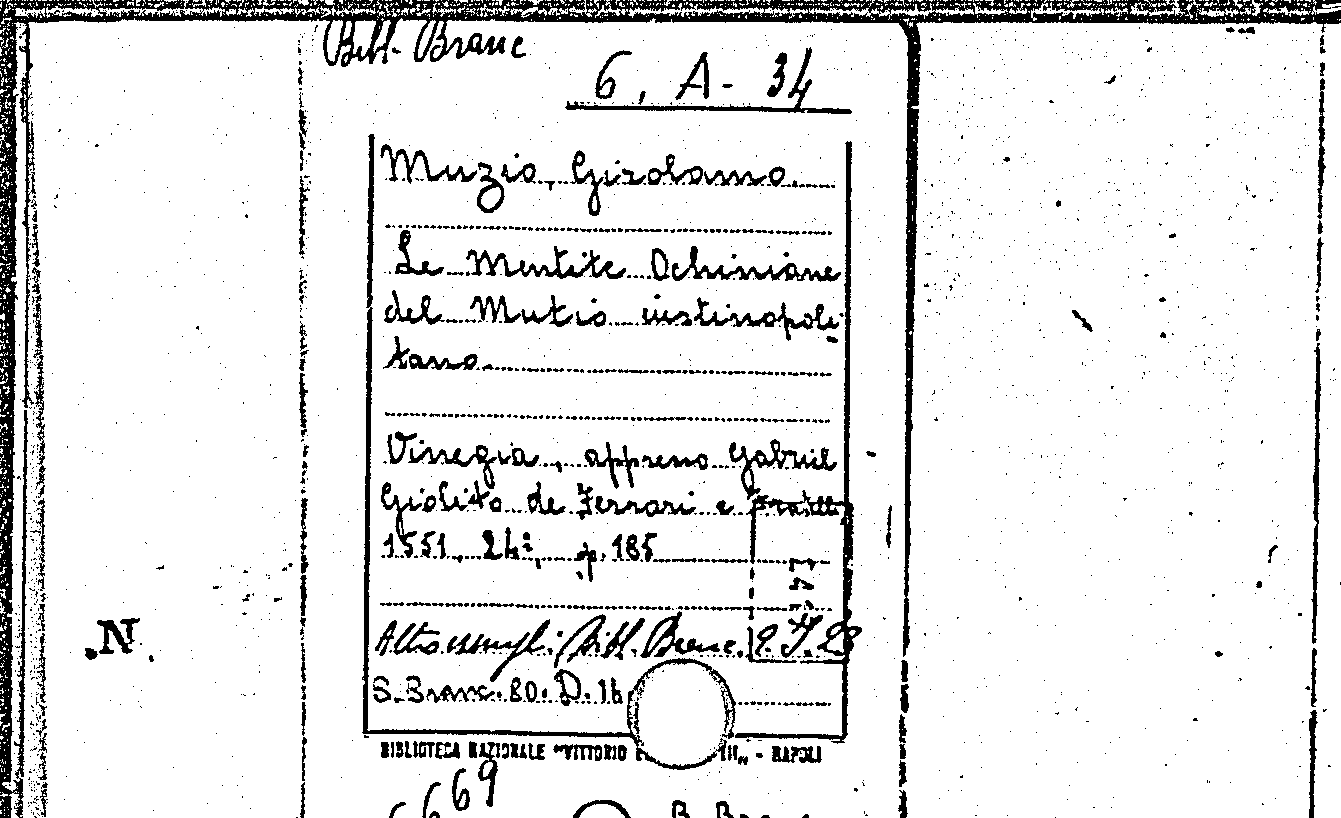 Bibl. Branc
6, A- 34
Muzio, Girolamo.
Le Mentite Ochiniane
del Mutio iustinopoli-
tano.
Vinegia, appresso Gabriel
Giolito de Ferrari e Fratelli,
1551, 24º, p. 185
Altro esempl: Bibl. Branc.
S. Branc. 80. D. 16
BIBLIOTECA NAZIONALE "VITTORIO III„ - NAPOLI
.N.
669
B. Branc